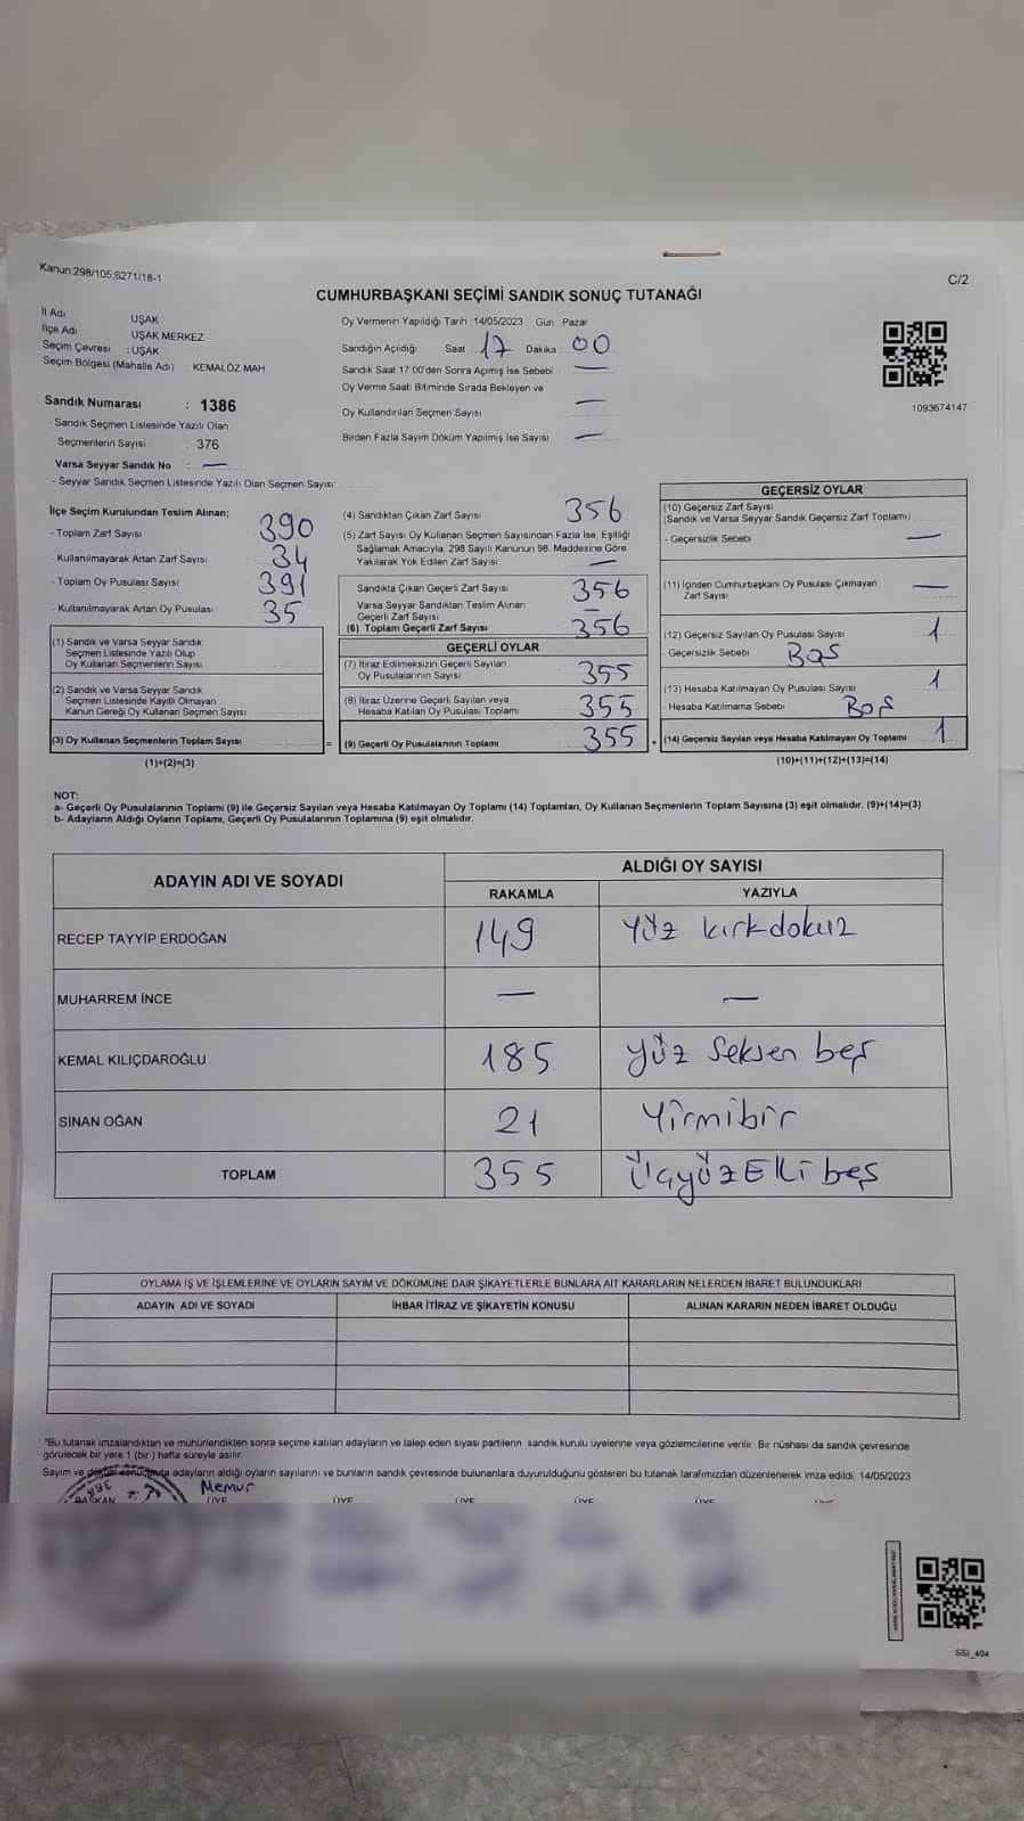 Kanun:298/105;6271/18-1
C/2
CUMHURBAŞKANI SEÇİMİ SANDIK SONUÇ TUTANAĞI
İl Adı UŞAK
İlçe Adı UŞAK MERKEZ
Seçim Çevresi : UŞAK
Seçim Bölgesi (Mahalle Adı) KEMALÖZ MAH
Sandık Numarası : 1386
Sandık Seçmen Listesinde Yazılı Olan
Seçmenlerin Sayısı 376
Varsa Seyyar Sandık No : —
- Seyyar Sandık Seçmen Listesinde Yazılı Olan Seçmen Sayısı
Oy Vermenin Yapıldığı Tarih :14/05/2023 Gün Pazar
Sandığın Açıldığı Saat 17 Dakika 00
Sandık Saat 17 00'den Sonra Açımış İse Sebebi —
Oy Verme Saati Bitiminde Sırada Bekleyen ve
Oy Kullandırılan Seçmen Sayısı —
Birden Fazla Sayım Döküm Yapılmış İse Sayısı —
1093674147
İlçe Seçim Kurulundan Teslim Alınan;
- Toplam Zarf Sayısı 390
- Kullanılmayarak Artan Zarf Sayısı 34
- Toplam Oy Pusulası Sayısı 391
- Kullanılmayarak Artan Oy Pusulası 35
(1) Sandık ve Varsa Seyyar Sandık
Seçmen Listesinde Yazılı Olup
Oy Kullanan Seçmenlerin Sayısı
(2) Sandık ve Varsa Seyyar Sandık
Seçmen Listesinde Kayıtlı Olmayan
Kanun Gereği Oy Kullanan Seçmen Sayısı
(3) Oy Kullanan Seçmenlerin Toplam Sayısı
(1)+(2)=(3)
(4) Sandıktan Çıkan Zarf Sayısı 356
(5) Zarf Sayısı Oy Kullanan Seçmen Sayısından Fazla İse, Eşitliği
Sağlamak Amacıyla, 298 Sayılı Kanunun 98. Maddesine Göre
Yakılarak Yok Edilen Zarf Sayısı —
Sandıkta Çıkan Geçerli Zarf Sayısı 356
Varsa Seyyar Sandıktan Teslim Alınan
Geçerli Zarf Sayısı —
(6) Toplam Geçerli Zarf Sayısı 356
GEÇERLİ OYLAR
(7) İtiraz Edilmeksizin Geçerli Sayılan
Oy Pusulalarının Sayısı 355
(8) İtiraz Üzerine Geçerli Sayılan veya
Hesaba Katılan Oy Pusulası Toplamı 355
= (9) Geçerli Oy Pusulalarının Toplamı 355 +
GEÇERSİZ OYLAR
(10) Geçersiz Zarf Sayısı
(Sandık ve Varsa Seyyar Sandık Geçersiz Zarf Toplamı)
- Geçersizlik Sebebi —
(11) İçinden Cumhurbaşkanı Oy Pusulası Çıkmayan
Zarf Sayısı —
(12) Geçersiz Sayılan Oy Pusulası Sayısı 1
- Geçersizlik Sebebi Boş
(13) Hesaba Katılmayan Oy Pusulası Sayısı 1
- Hesaba Katılmama Sebebi Boş
(14) Geçersiz Sayılan veya Hesaba Katılmayan Oy Toplamı 1
(10)+(11)+(12)+(13)=(14)
NOT:
a- Geçerli Oy Pusulalarının Toplamı (9) ile Geçersiz Sayılan veya Hesaba Katılmayan Oy Toplamı (14) Toplamları, Oy Kullanan Seçmenlerin Toplam Sayısına (3) eşit olmalıdır. (9)+(14)=(3)
b- Adayların Aldığı Oyların Toplamı, Geçerli Oy Pusulalarının Toplamına (9) eşit olmalıdır.
ADAYIN ADI VE SOYADI ALDIĞI OY SAYISI
RAKAMLA YAZIYLA
RECEP TAYYİP ERDOĞAN 149 Yüz kırkdokuz
MUHARREM İNCE — —
KEMAL KILIÇDAROĞLU 185 yüz seksen beş
SİNAN OĞAN 21 Yirmibir
TOPLAM 355 ÜçyüzElli beş
OYLAMA İŞ VE İŞLEMLERİNE VE OYLARIN SAYIM VE DÖKÜMÜNE DAİR ŞİKAYETLERLE BUNLARA AİT KARARLARIN NELERDEN İBARET BULUNDUKLARI
ADAYIN ADI VE SOYADI İHBAR İTİRAZ VE ŞİKAYETİN KONUSU ALINAN KARARIN NEDEN İBARET OLDUĞU
"Bu tutanak imzalandıktan ve mühürlendikten sonra seçime katılan adayların ve talep eden siyasi partilerin sandık kurulu üyelerine veya gözlemcilerine verilir. Bir nüshası da sandık çevresinde
görülecek bir yere 1 (bir) hafta süreyle asılır.
Sayım ve döküm sonucunda adayların aldığı oyların sayılarını ve bunların sandık çevresinde bulunanlara duyurulduğunu gösteren bu tutanak tarafımızdan düzenlenerek imza edildi. 14/05/2023
Memur
BAŞKAN ÜYE ÜYE ÜYE ÜYE ÜYE ÜYE
SSI_404